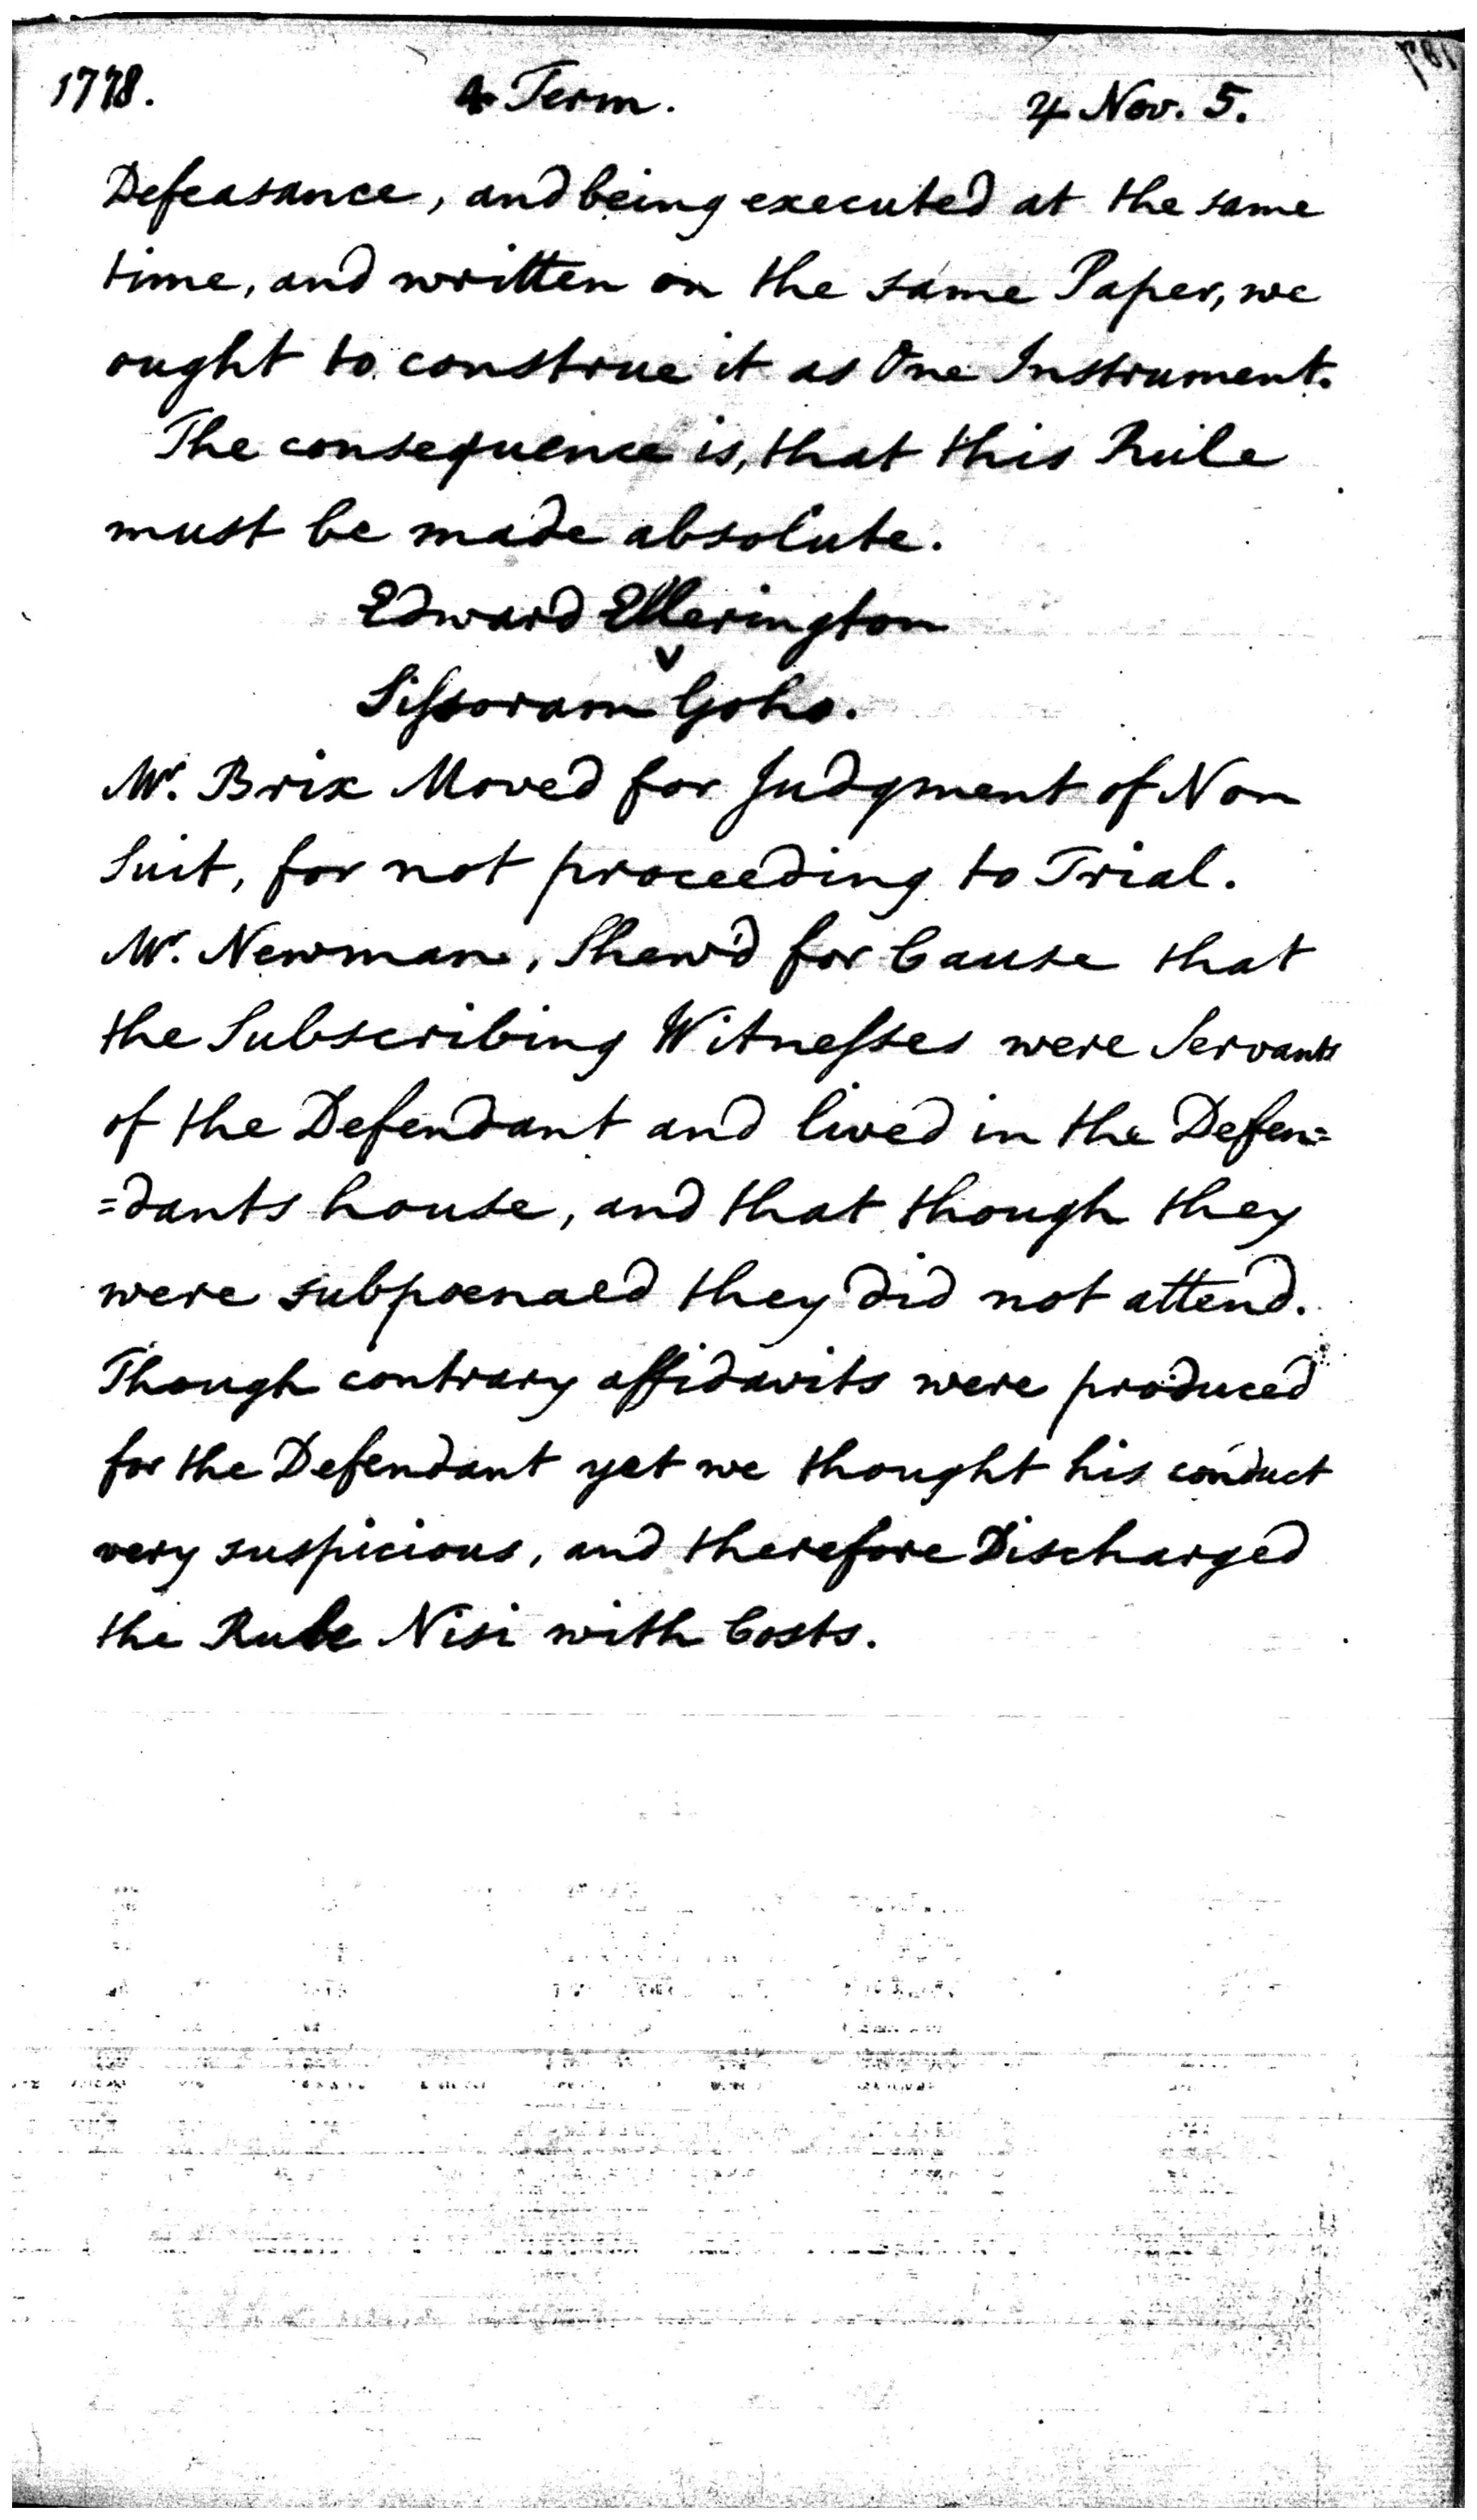 1778. 4 Term. 4 Nov. 5.
Defeasance, and being executed at the same
time, and written on the same Paper, we
ought to construe it as One Instrument.
The consequence is, that this Rule
must be made absolute.
Edward Ellerington
v
Sissoram Gohs.
Mr. Brix Moved for Judgment of Non
Suit, for not proceeding to Trial.
Mr. Newman, Shew'd for Cause that
the Subscribing Witnesses were Servants
of the Defendant and lived in the Defen=
=dants house, and that though they
were subpoenaed they did not attend.
Though contrary affidavits were produced
for the Defendant yet we thought his conduct
very suspicious, and therefore Discharged
the Rule Nisi with Costs.